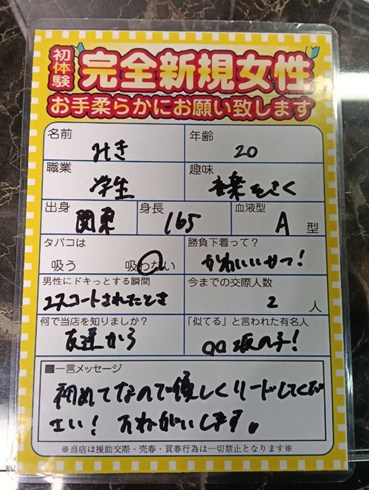 初体験
完全新規女性
お手柔らかにお願い致します
名前 みき
年齢 20
職業 学生
趣味 音楽をきく
出身 関東
身長 165
血液型 A 型
タバコは 吸う 吸わない
勝負下着って? かわいいせつ!
男性にドキっとする瞬間 エスコートされたとき
今までの交際人数 2 人
何で当店を知りましたか? 友達から
「似てる」と言われた有名人 〇〇坂の子!
■一言メッセージ
初めてなので優しくリードしてくだ
さい! おねがいします。
※当店は援助交際・売春・買春行為は一切禁止となります※